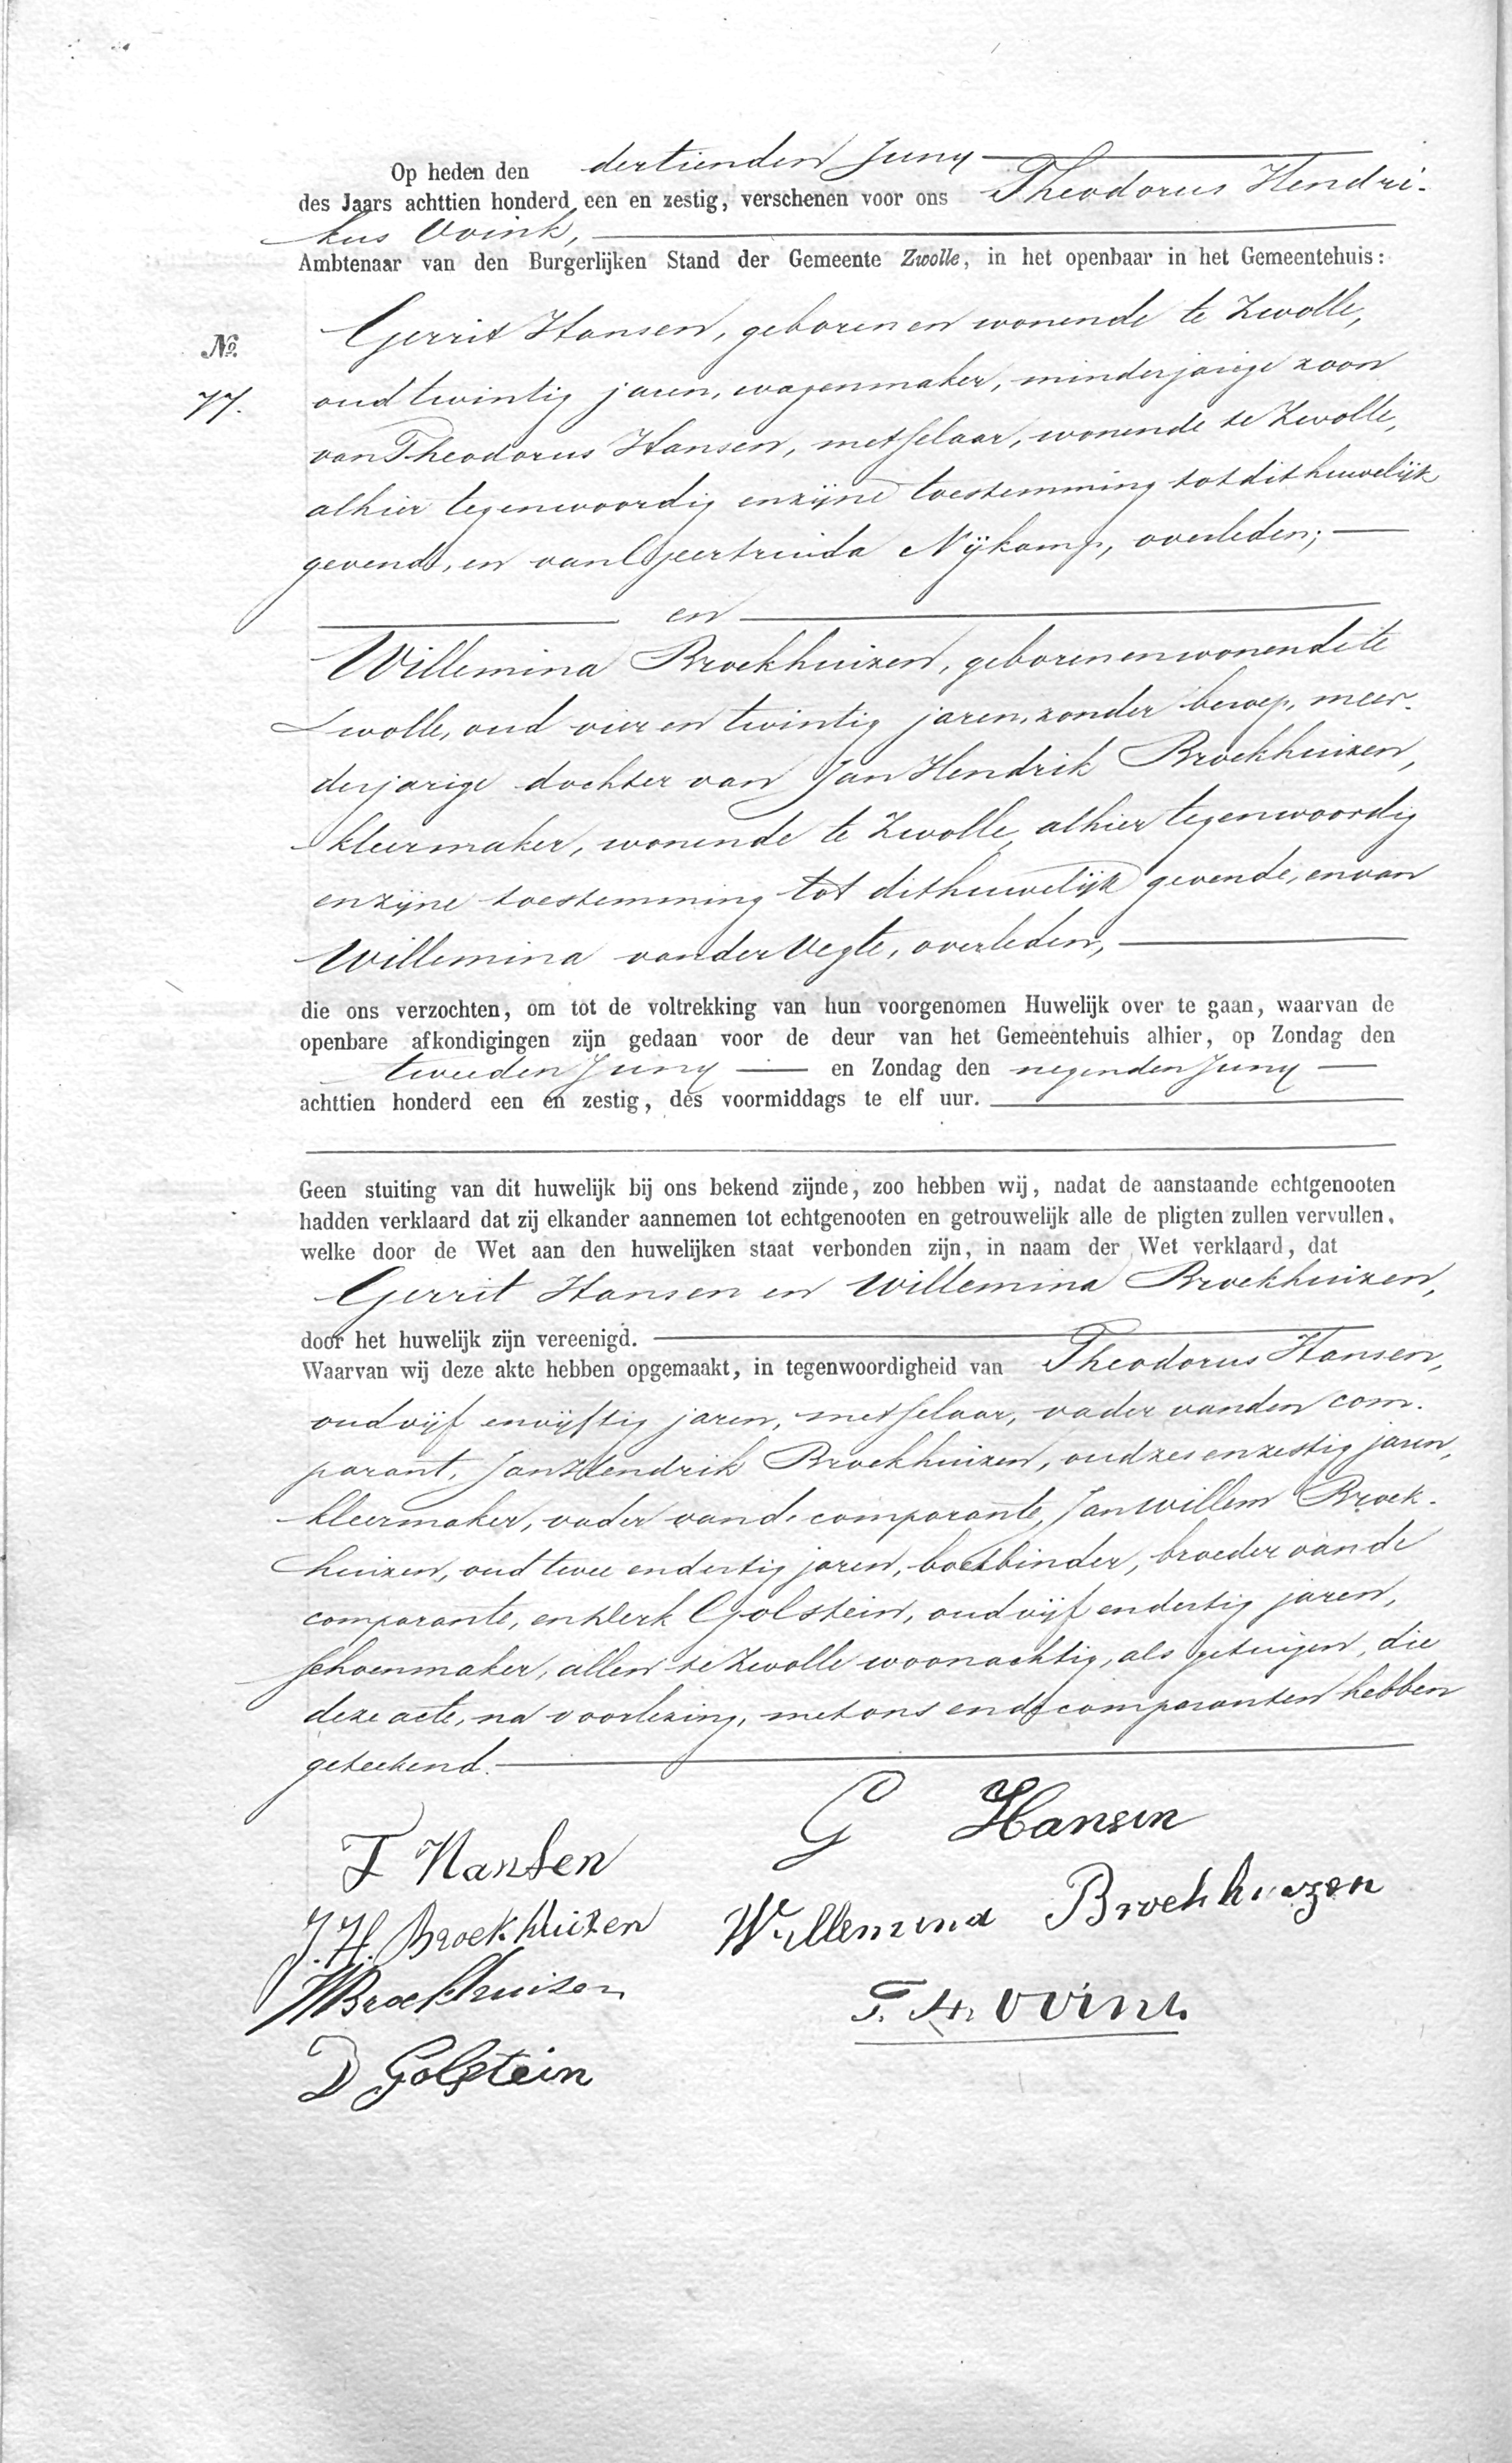 Op heden den dertienden Juny
des Jaars achttien honderd een en zestig, verschenen voor ons Theodorus Hendri-
kus Ovink,
Ambtenaar van den Burgerlijken Stand der Gemeente Zwolle, in het openbaar in het Gemeentehuis:
No.
77.
Gerrit Hansen, geboren en wonende te Zwolle,
oud twintig jaren, wagenmaker, minderjarige zoon
van Theodorus Hansen, metselaar, wonende te Zwolle,
alhier tegenwoordig en zijne toestemming tot dit huwelijk
gevende, en van Geertruida Nijkamp, overleden;
en
Willemina Broekhuizen, geboren en wonende te
Zwolle, oud vier en twintig jaren, zonder beroep, meer-
derjarige dochter van Jan Hendrik Broekhuizen,
kleermaker, wonende te Zwolle, alhier tegenwoordig
en zijne toestemming tot dit huwelijk gevende, en van
Willemina van der Vegte, overleden,
die ons verzochten, om tot de voltrekking van hun voorgenomen Huwelijk over te gaan, waarvan de
openbare afkondigingen zijn gedaan voor de deur van het Gemeentehuis alhier, op Zondag den
tweeden Juny en Zondag den negenden Juny
achttien honderd een en zestig, des voormiddags te elf uur.
Geen stuiting van dit huwelijk bij ons bekend zijnde, zoo hebben wij, nadat de aanstaande echtgenooten
hadden verklaard dat zij elkander aannemen tot echtgenooten en getrouwelijk alle de pligten zullen vervullen,
welke door de Wet aan den huwelijken staat verbonden zijn, in naam der Wet verklaard, dat
Gerrit Hansen en Willemina Broekhuizen,
door het huwelijk zijn vereenigd.
Waarvan wij deze akte hebben opgemaakt, in tegenwoordigheid van Theodorus Hansen,
oud vijf en vijftig jaren, metselaar, vader van den com-
parant, Jan Hendrik Broekhuizen, oud zes en zestig jaren,
kleermaker, vader van de comparante, Jan Willem Broek-
huizen, oud twee en dertig jaren, boekbinder, broeder van de
comparante, en Derk Golstein, oud vijf en dertig jaren,
schoenmaker, allen te Zwolle woonachtig, als getuigen, die
deze acte, na voorlezing, met ons en de comparanten hebben
geteekend.
G Hansen
T Hansen
Willemina Broekhuizen
J.H. Broekhuizen
JWBroekhuizen
T. H. Ovink
D Golstein